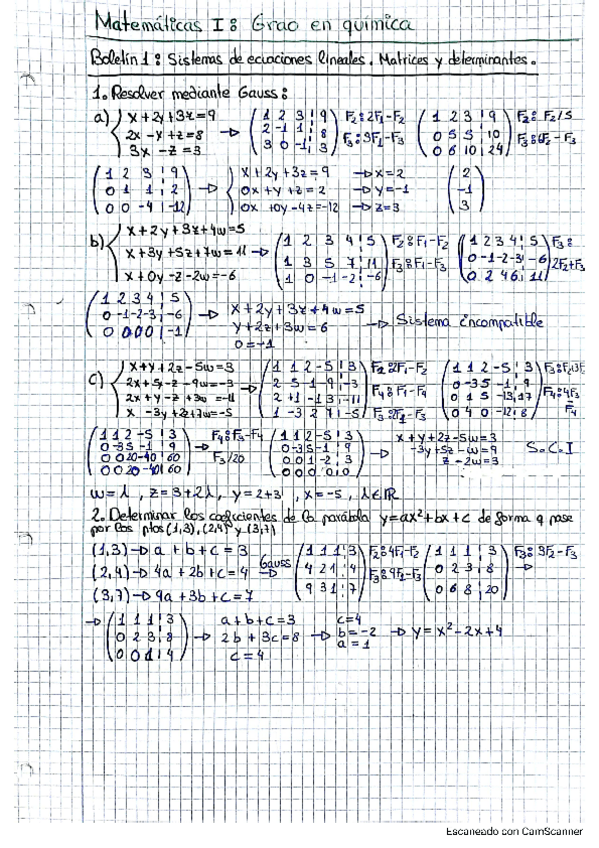 Matemáticas I: Grao en química
Boletín 1: Sistemas de ecuaciones lineales. Matrices y determinantes.
1. Resolver mediante Gauss:
a) x+2y+3z=9
2x-y+z=8
3x -z=3
→ (1 2 3 | 9
2 -1 1 | 8
3 0 -1 | 3)
F2: 2F1-F2
F3: 3F1-F3
(1 2 3 | 9
0 5 5 | 10
0 6 10 | 24)
F2: F2/5
(1 2 3 | 9
0 1 1 | 2
0 0 -4 | -12)
→ x+2y+3z=9 → x=2
0x+y+z=2 → y=-1
0x+0y-4z=-12 → z=3
(2
-1
3)
b) x+2y+3z+4w=5
x+3y+5z+7w=11
x+0y-z-2w=-6
→ (1 2 3 4 | 5
1 3 5 7 | 11
1 0 -1 -2 | -6)
F2: F1-F2
F3: F1-F3
(1 2 3 4 | 5
0 -1 -2 -3 | -6
0 2 4 6 | 11)
F3:
2F2+F3
(1 2 3 4 | 5
0 -1 -2 -3 | -6
0 0 0 0 | -1)
→ x+2y+3z+4w=5
y+2z+3w=6
0=-1
→ Sistema incompatible
c) x+y+2z-5w=3
2x+5y-z-9w=-3
x -3y+2z+7w=-5
→ (1 1 2 -5 | 3
2 5 -1 -9 | -3
2 +1 -1 3 | -11
1 -3 2 7 | -5)
F2: 2F1-F2
F4: F1-F4
F3: 2F1-F3
(1 1 2 -5 | 3
0 -3 5 -1 | 9
0 1 5 -13 | 17
0 4 0 -12 | 8)
(1 1 2 -5 | 3
0 -3 5 -1 | 9
0 0 20 -40 | 60
0 0 20 -40 | 60)
F4: F3-F4
→
F3/20
(1 1 2 -5 | 3
0 -3 5 -1 | 9
0 0 1 -2 | 3
0 0 0 0 | 0)
→ x+y+2z-5w=3
-3y+5z-w=9
z-2w=3
S.C.I
w=λ, z=3+2λ, y=2+3λ, x=-5, λ∈ℝ
2. Determinar los coeficientes de la parábola y=ax²+bx+c de forma q pase
por los ptos (1,3), (2,4) y (3,7)
(1,3) → a+b+c=3
(2,4) → 4a+2b+c=4
(3,7) → 9a+3b+c=7
Gauss
→
(1 1 1 | 3
4 2 1 | 4
9 3 1 | 7)
F2: 4F1-F2
F3: 9F1-F3
(1 1 1 | 3
0 2 3 | 8
0 6 8 | 20)
F3: 3F2-F3
→
→ (1 1 1 | 3
0 2 3 | 8
0 0 1 | 4)
→ a+b+c=3
2b+3c=8
c=4
→ c=4
b=-2
a=1
→ y=x²-2x+4
Escaneado con CamScanner